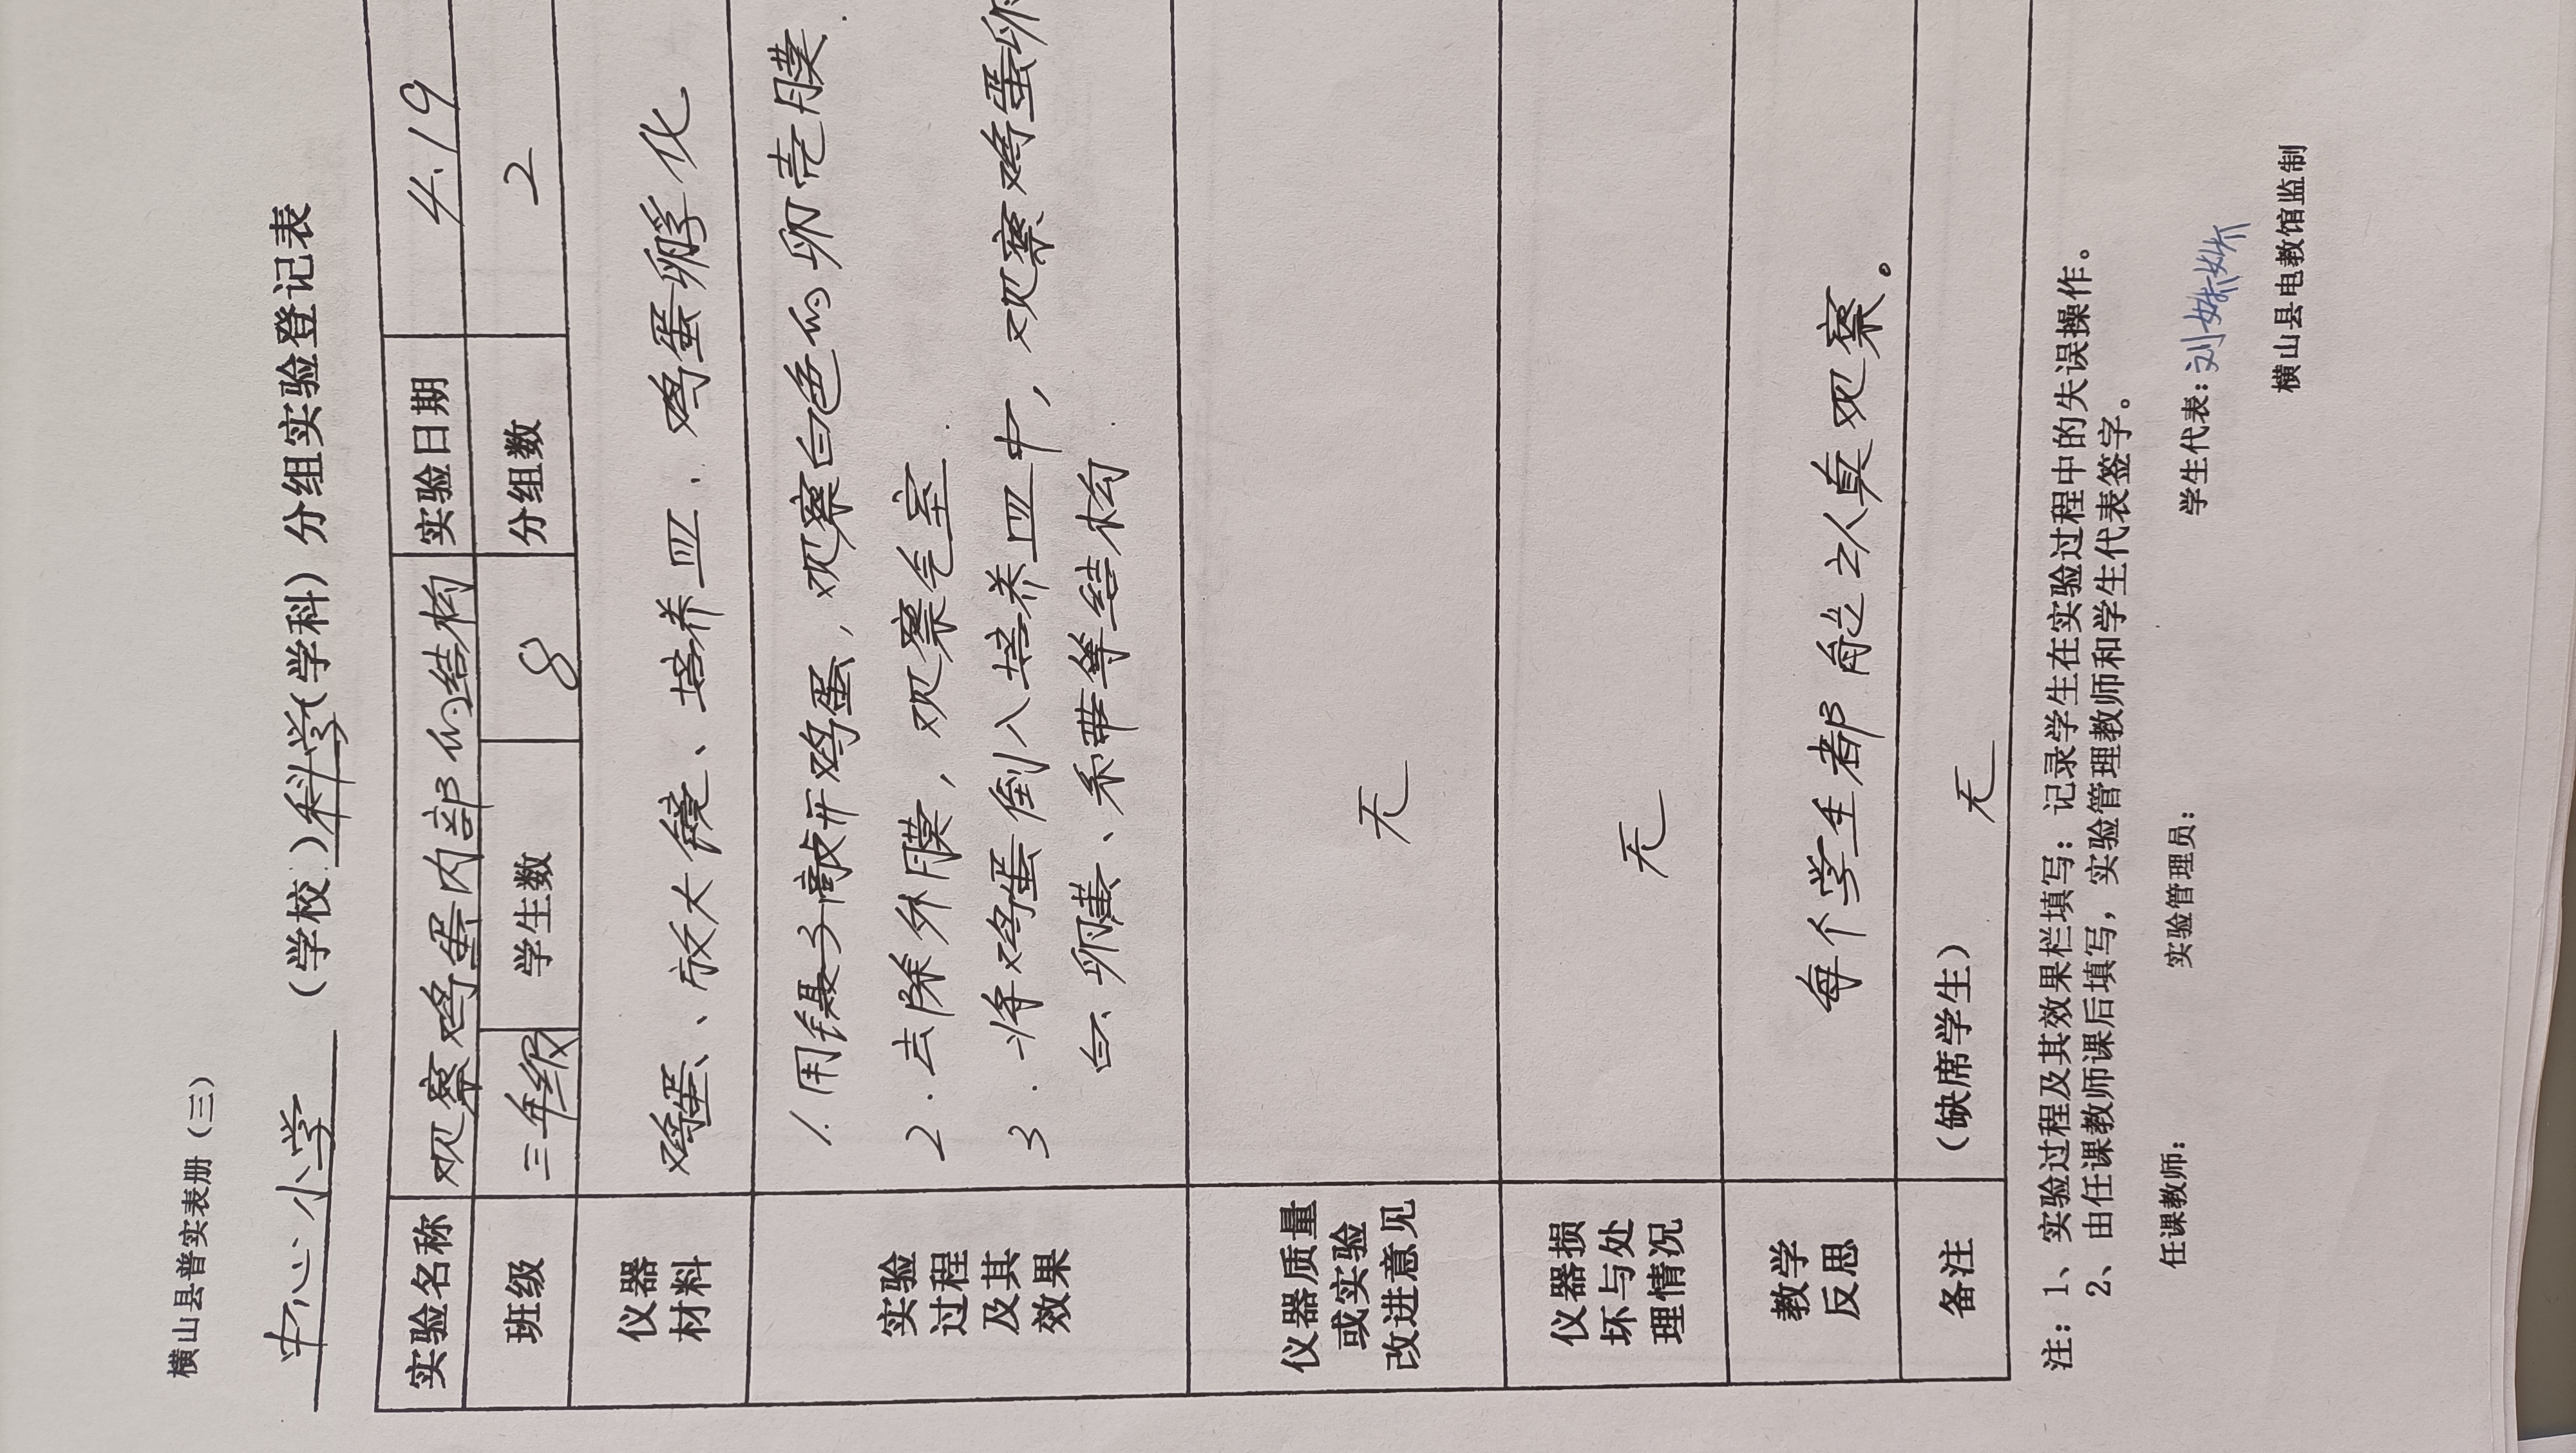 横山县普实表册（三）
中心小学（学校）科学（学科）分组实验登记表
实验名称 观察鸡蛋内部的结构 实验日期 4.19
班级 三年级 学生数 8 分组数 2
仪器材料 鸡蛋、放大镜、培养皿．鸡蛋孵化
实验过程及其效果
1. 用镊子敲开鸡蛋，观察白色的卵壳膜．
2．去除外膜，观察气室．
3．将鸡蛋倒入培养皿中，观察鸡蛋卵
白、卵黄、系带等结构．
仪器质量或实验改进意见 无
仪器损坏与处理情况 无
教学反思 每个学生都能认真观察。
备注 （缺席学生） 无
注：1、实验过程及其效果栏填写：记录学生在实验过程中的失误操作。
2、由任课教师课后填写，实验管理教师和学生代表签字。
任课教师： 实验管理员： 学生代表：刘
横山县电教馆监制